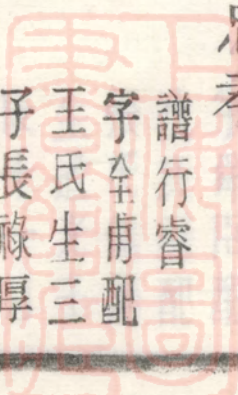 譜行睿
字全甫配
王氏生三
子長祿厚